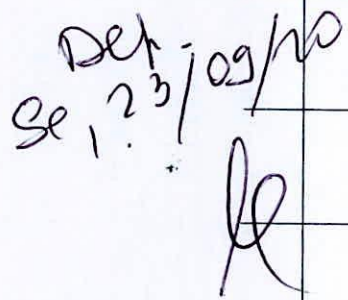 Def.
Se, 23/09/20